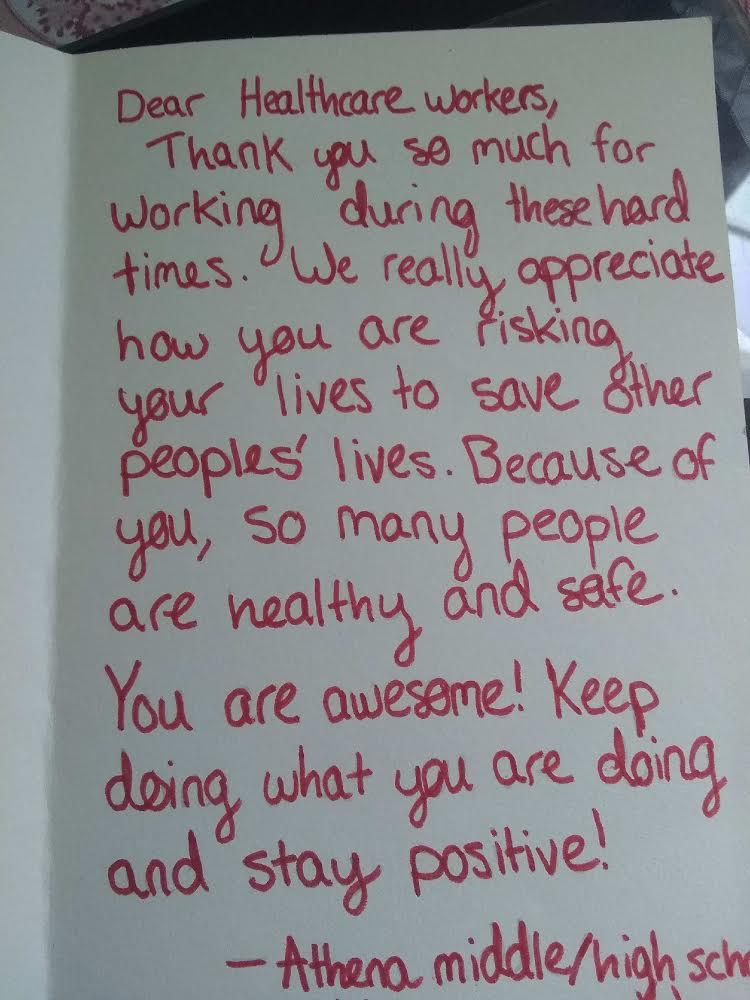 Dear Healthcare workers,
Thank you so much for
working during these hard
times. We really appreciate
how you are risking
your lives to save other
peoples' lives. Because of
you, so many people
are healthy and safe.
You are awesome! Keep
doing what you are doing
and stay positive!
- Athena middle/high